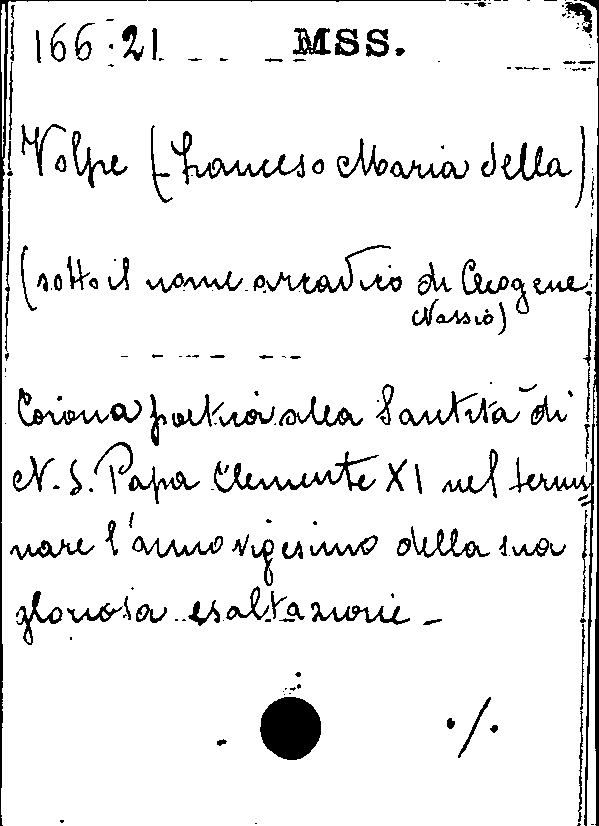 166.21 MSS.
Volpe (Francesco Maria della)
(sotto il nome arcadico di Cleogene
Nassio)
Corona poetica alla Santità di
N. S. Papa Clemente XI nel termi=
nare l'anno vigesimo della sua
gloriosa esaltazione -
./.